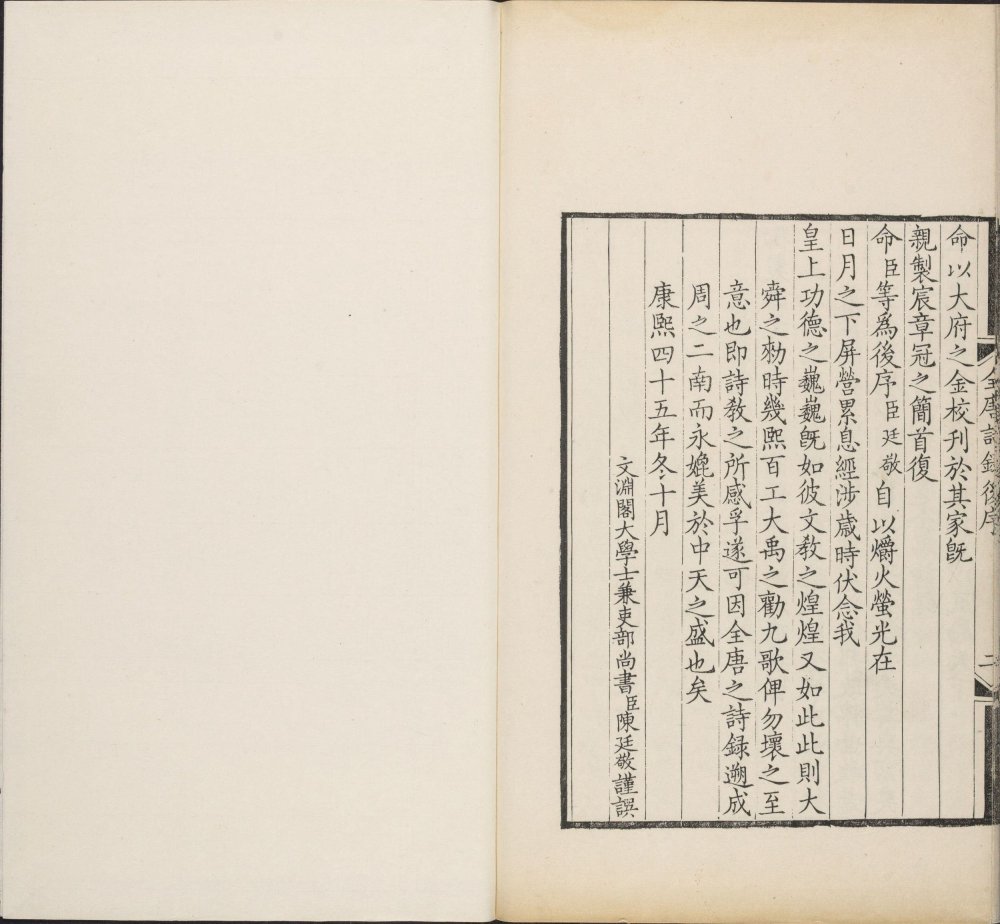 全唐詩錄後序
二
命以大府之金校刊於其家旣
親製宸章冠之簡首復
命臣等爲後序臣廷敬自以爝火螢光在
日月之下屏營累息經涉歲時伏念我
皇上功德之巍巍旣如彼文敎之煌煌又如此此則大
舜之勑時幾熙百工大禹之勸九歌俾勿壞之至
意也即詩敎之所感孚遂可因全唐之詩録遡成
周之二南而永媲美於中天之盛也矣
康熙四十五年冬十月
文淵閣大學士兼吏部尚書臣陳廷敬謹譔